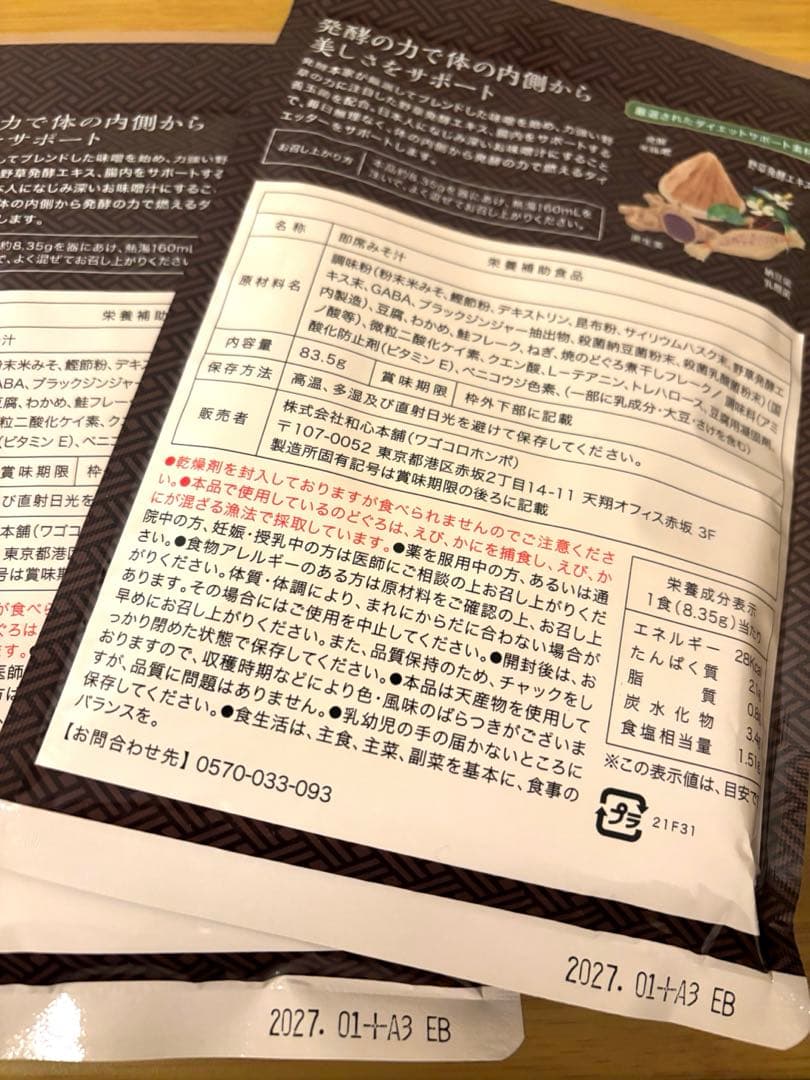 発酵の力で体の内側から
美しさをサポート
発酵本家が厳選してブレンドした味噌を始め、力強い野
草の力に注目した野草発酵エキス、腸内をサポートする
善玉菌を配合。日本人になじみ深いお味噌汁にすること
で、毎日無理なく、体の内側から発酵の力で燃えるダイ
エッターをサポートします。
お召し上がり方
本品約8.35gを器にあけ、熱湯160mLを
注いで、よく混ぜてお召し上がりください。
厳選されたダイエットサポート素材
野草発酵エキ
納豆菌
乳酸菌
名称
即席みそ汁
栄養補助食品
原材料名
調味粉(粉末米みそ、鰹節粉、デキストリン、昆布粉、サイリウムハスク末、野草発酵エ
キス末、GABA、ブラックジンジャー抽出物、殺菌納豆菌粉末、殺菌乳酸菌粉末)(国
内製造)、豆腐、わかめ、鮭フレーク、ねぎ、焼のどぐろ煮干しフレーク/調味料(アミ
ノ酸等)、微粒二酸化ケイ素、クエン酸、L-テアニン、トレハロース、豆腐用凝固剤、
酸化防止剤(ビタミンE)、ベニコウジ色素、(一部に乳成分・大豆・さけを含む)
内容量
83.5g
賞味期限
枠外下部に記載
保存方法
高温、多湿及び直射日光を避けて保存してください。
販売者
株式会社和心本舗(ワゴコロホンポ)
〒107-0052 東京都港区赤坂2丁目14-11 天翔オフィス赤坂 3F
製造所固有記号は賞味期限の後ろに記載
●乾燥剤を封入しておりますが食べられませんのでご注意くださ
い。●本品で使用しているのどぐろは、えび、かにを捕食し、えび、か
にが混ざる漁法で採取しています。●薬を服用中の方、あるいは通
院中の方、妊娠・授乳中の方は医師にご相談の上お召し上がりくだ
さい。●食物アレルギーのある方は原材料をご確認の上、お召し上
がりください。体質・体調により、まれにからだに合わない場合が
あります。その場合にはご使用を中止してください。●開封後は、お
早めにお召し上がりください。また、品質保持のため、チャックをし
っかり閉めた状態で保存してください。●本品は天産物を使用して
おりますので、収穫時期などにより色・風味のばらつきがございま
すが、品質に問題はありません。●乳幼児の手の届かないところに
保存してください。●食生活は、主食、主菜、副菜を基本に、食事の
バランスを。
【お問合わせ先】0570-033-093
栄養成分表示
1食(8.35g)当たり
エネルギー 28Kcal
たんぱく質 2.1g
脂質 0.6g
炭水化物 3.4g
食塩相当量 1.51g
※この表示値は、目安で
プラ
21F31
2027. 01+A3 EB
力で体の内側から
をサポート
してブレンドした味噌を始め、力強い野
野草発酵エキス、腸内をサポートする
人になじみ深いお味噌汁にするこ
体の内側から発酵の力で燃えるダ
します。
約8.35gを器にあけ、熱湯160ml
で、よく混ぜてお召し上がりくださ
栄養補助
汁
粉末米みそ、鰹節粉、デキス
GABA、ブラックジンジャー
豆腐、わかめ、鮭フレーク、
、微粒二酸化ケイ素、ク
(ビタミンE)、ベニコ
賞味期限
枠
び直射日光を
本舗(ワゴコ
東京都港区
号は賞味
2027. 01+A3 EB